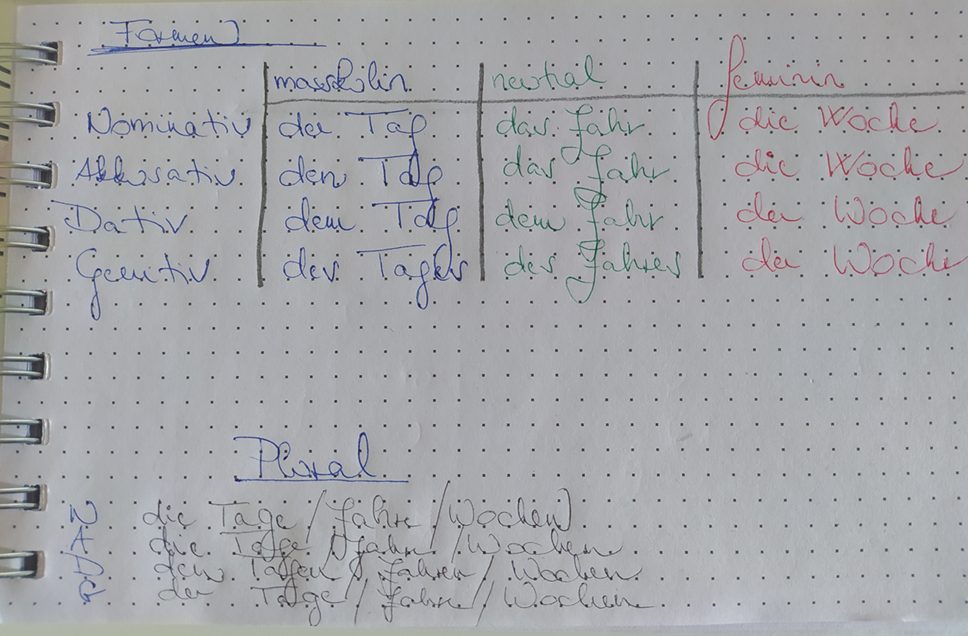 Formen
maskulin neutral feminin
Nominativ der Tag das Jahr die Woche
Akkusativ den Tag das Jahr die Woche
Dativ dem Tag dem Jahr der Woche
Genitiv des Tages des Jahres der Woche
Plural
N die Tage / Jahre / Wochen
A die Tage / Jahre / Wochen
D den Tagen / Jahren / Wochen
G der Tage / Jahre / Wochen